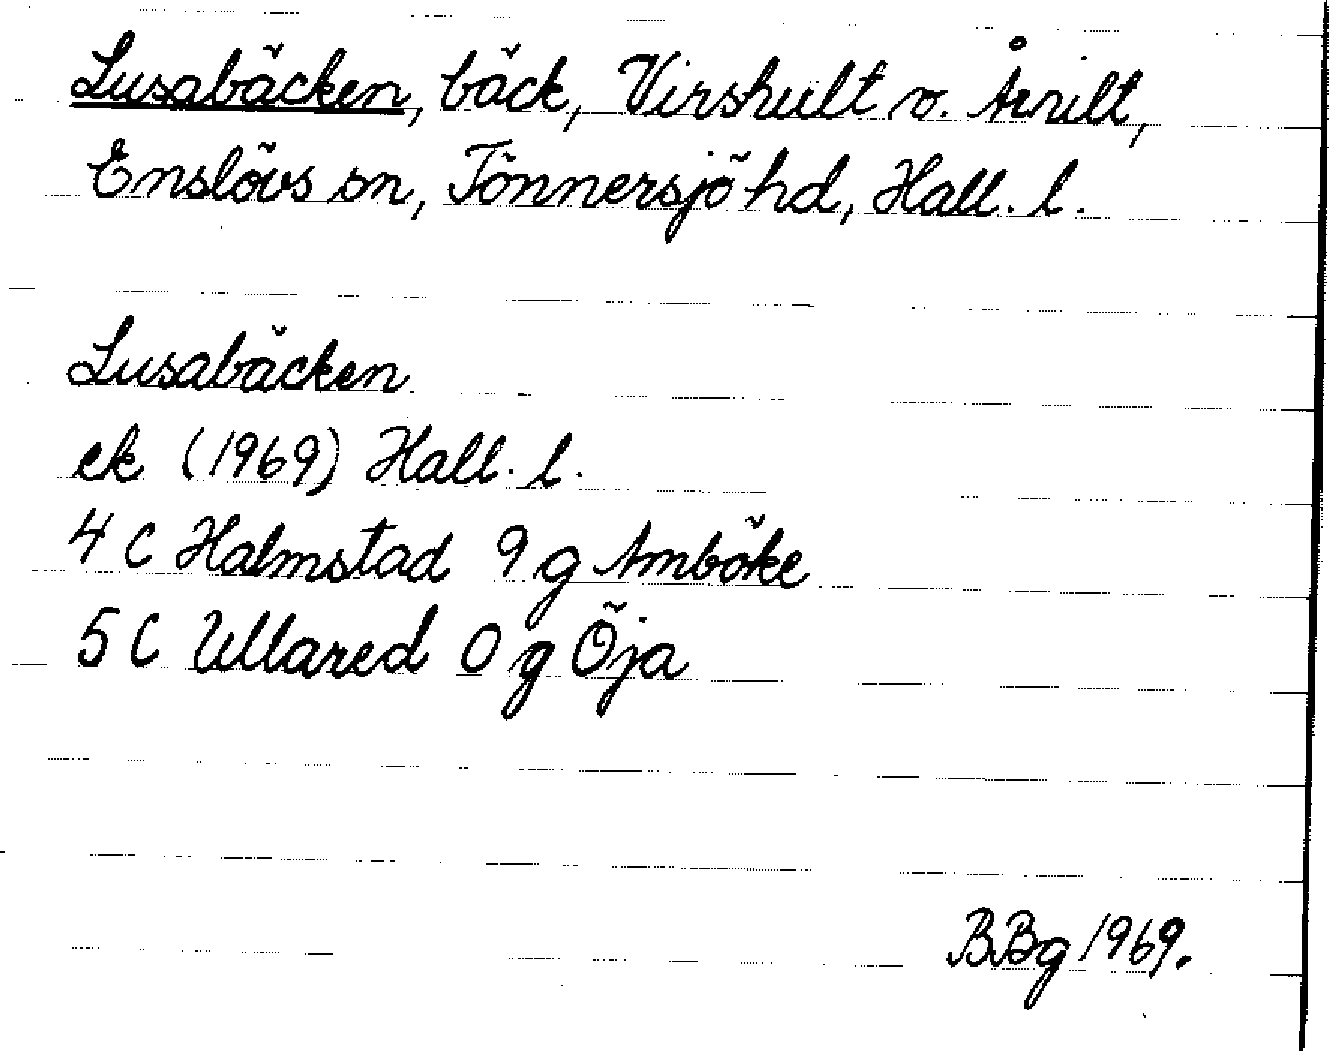 Lusabäcken, bäck, Virshult o. Årnilt,
Enslövs sn, Tönnersjö hd, Hall. l.
Lusabäcken
ek (1969) Hall. l.
4 C Halmstad 9 g Amböke
5 C Ullared 0 g Öja
BBg 1969.